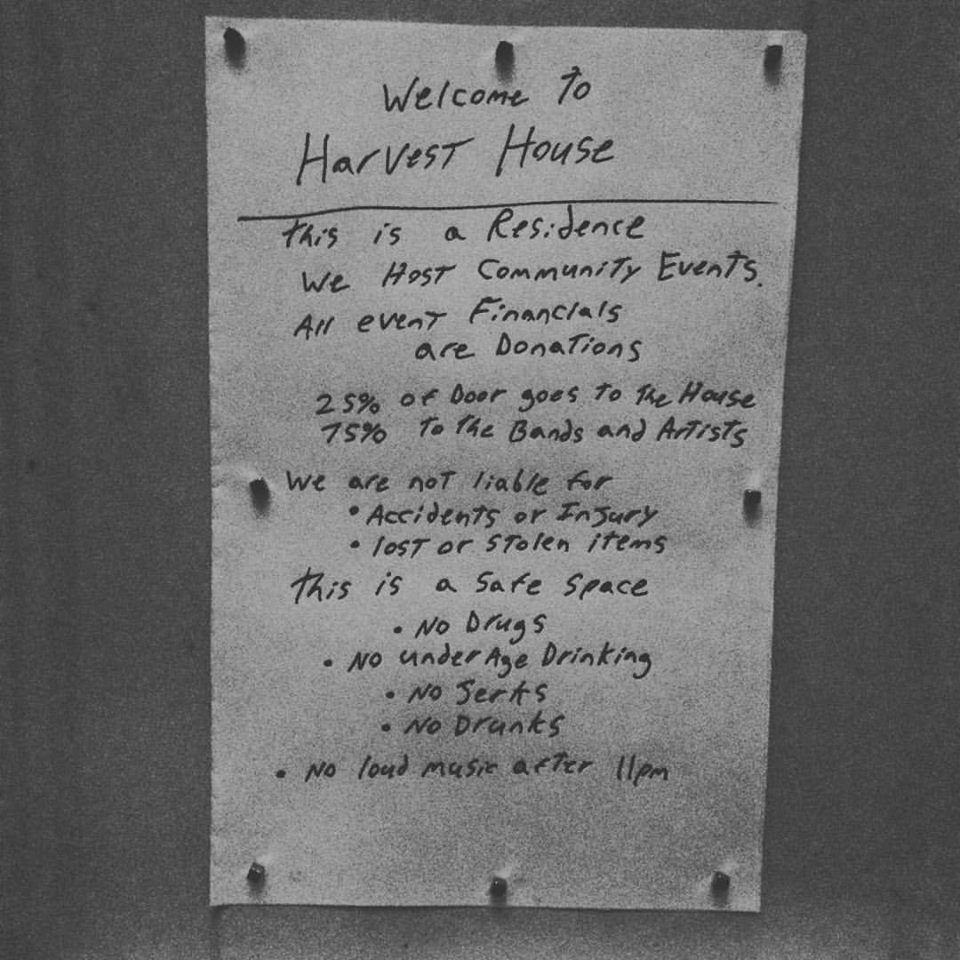 Welcome To
Harvest House
This is a Residence
We Host Community Events.
All event Financials
are Donations
25% of Door goes to the House
75% to the Bands and Artists
We are not liable for
• Accidents or Injury
• lost or stolen items
This is a safe space
• No Drugs
• No underAge Drinking
• No Jerks
• No Drunks
• No loud music after 11pm